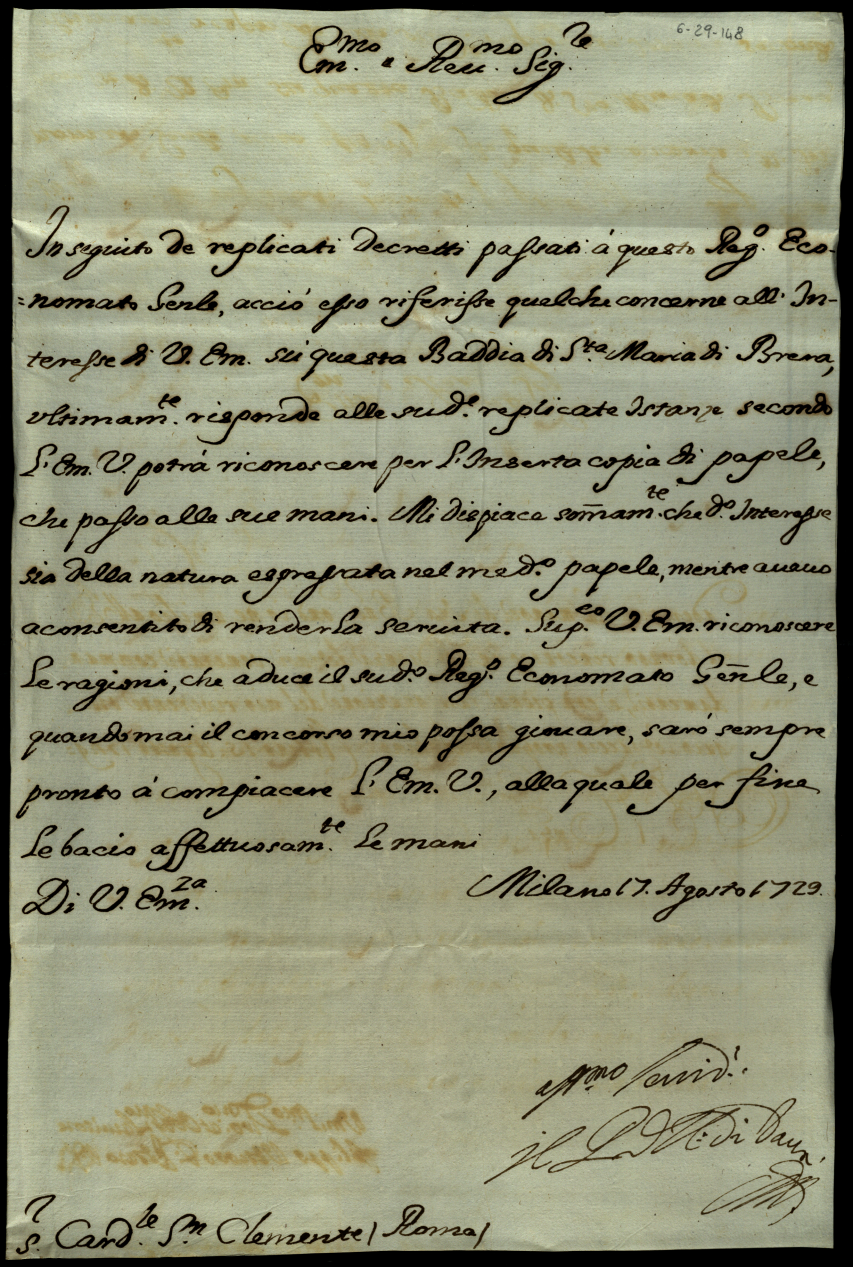 6-29-148
Em.mo e Reu.mo Sig.re
In seguito de replicati decretti passati á questo Reg.o Eco-
=nomato Genle, acció esso riferisse quelche concerne all' In-
teresse di V. Em. sú questa Baddia di S.ta Maria di Brera,
ultimam.te risponde alle sud.e replicate Istanze secondo
l'Em. V. potrá riconoscere per l'Inserta copia di papele,
che passo alle sue mani. Mi dispiace som̄am.te che d.o Interesse
sia della natura espressata nel med.o papele, mentre auauo
aconsentito di renderla seruita. Sup.co V. Em. riconoscere
le ragioni, che aduce il sud.o Reg.o Economato Gen̄le, e
quando mai il concorso mio possa giouare, saró sempre
pronto á compiacere l'Em. V., alla quale per fine
le bacio affettuosam.te le mani
Di V. Em.za Milano 17. Agosto 1729.
aff.mo Seruid.r
il di Daun
S.r Card.le S.n Clemente / Roma /